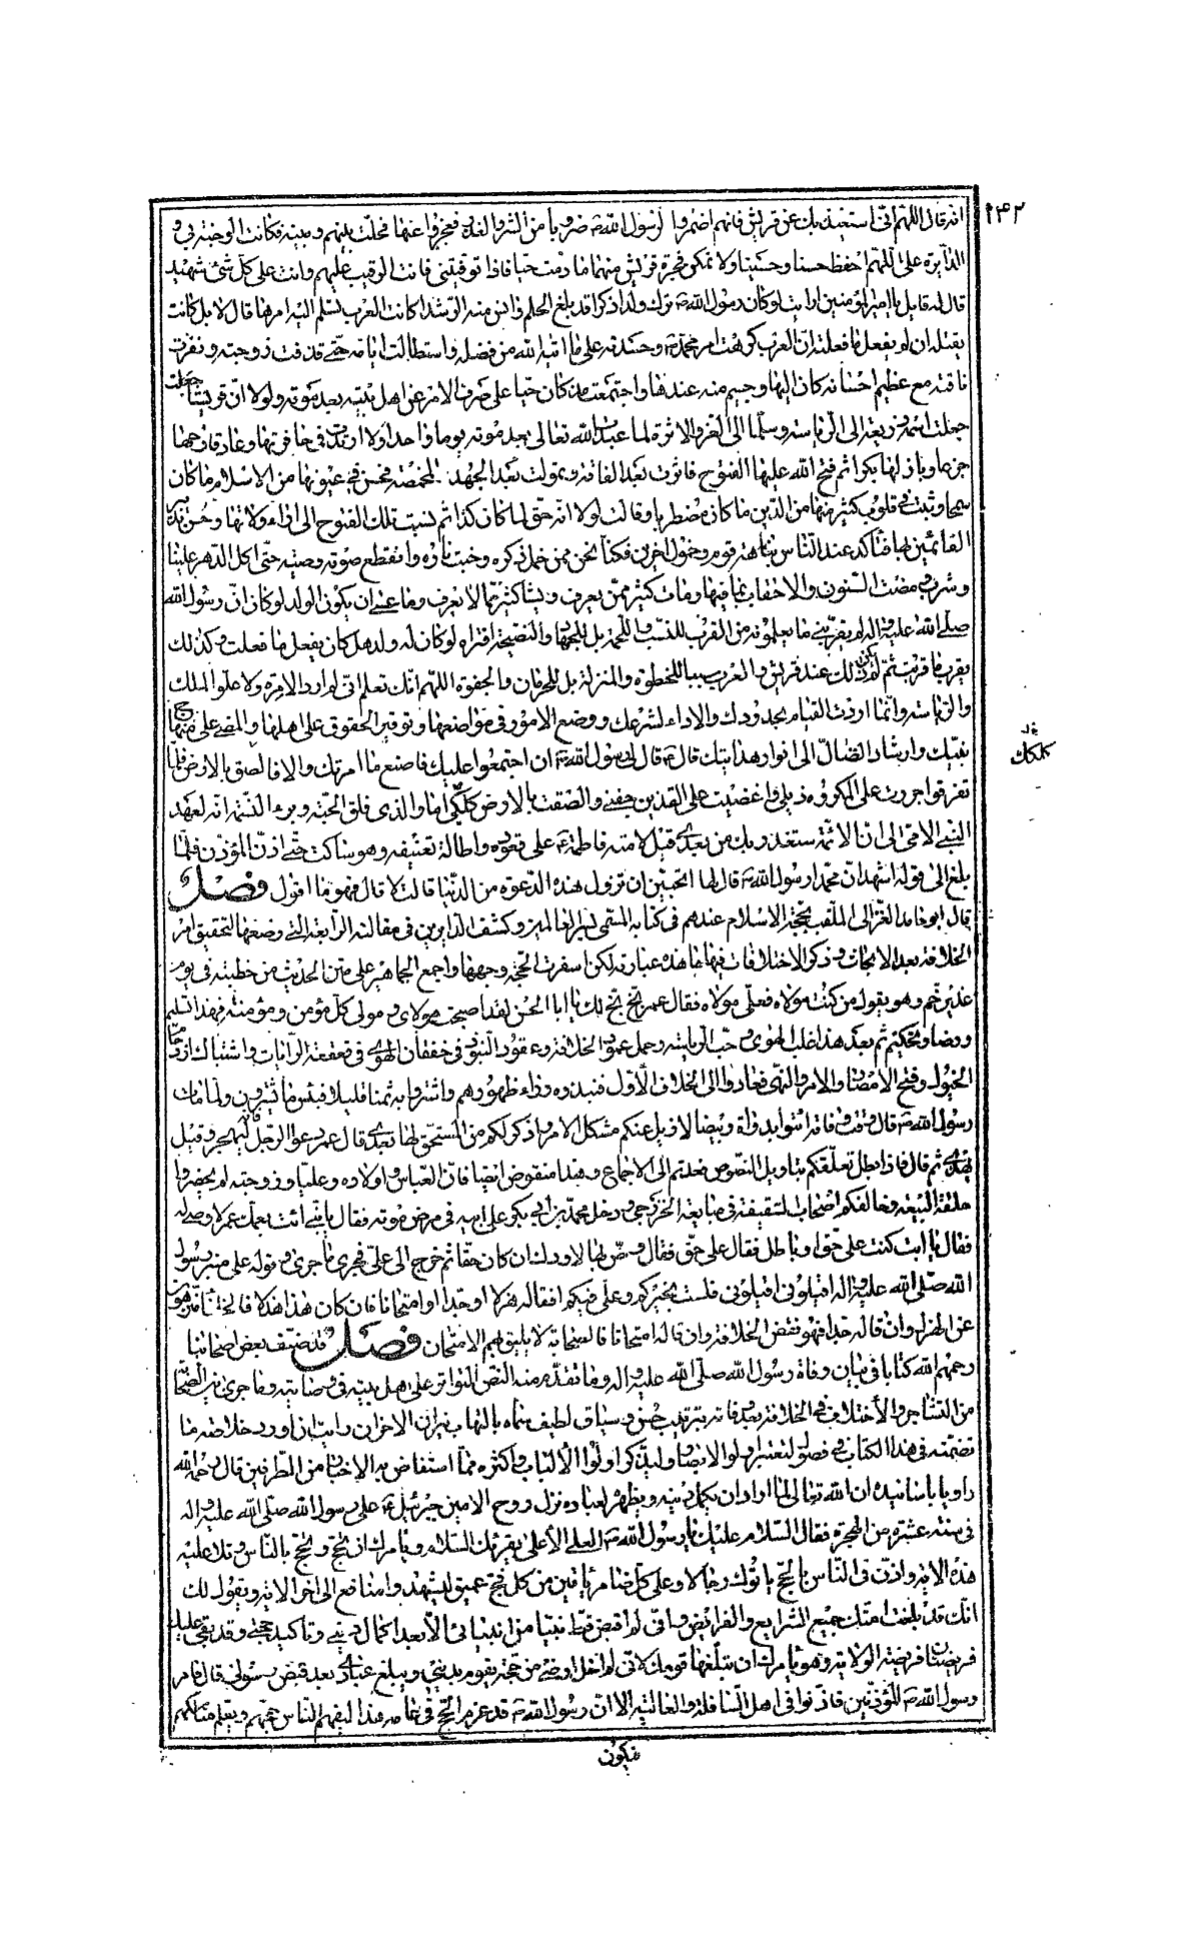 ٢٤٢
انه قال اللهم انى استعينك بك عن قريش فانهم اضمروا لرسول الله ص ضروبا من الشر والغدر فعجزوا عنها فحلت بينهم وبينه فكانت الوجبة بى و
الدائرة على اللهم احفظ حسنا وحسينا ولا تمكن فجرة قريش منهما ما دمت حيا فاذا توفيتنى فانت الرقيب عليهم وانت على كل شئ شهيد
قال له قايل يا امير المؤمنين ارايت لو كان رسول الله ص ترك ولدا ذكرا قد بلغ الحلم وانس منه الرشد اكانت العرب تسلم اليه امرها قال لا بل كانت
يقتله ان لم يفعل ما فعلت ان العرب كرهت امر محمد ص وحسدته على ما اتيه الله من فضله واستطالت ايامه حتى قذفت زوجته ونفرت
ناقته مع عظيم احسانه كان اليها وجسيم منه عندها واجتمعت مذ كان حيا على صرف الامر عن اهل بيته بعد موته ولولا ان قريشا جعلت
جعلت اسمه ذريعة الى الرياسة وسلما الى العز والامرة لما عبدت الله تعالى بعد موته يوما واحدا ولا ارتدت فى حافرتها وعاد قارحها
جزعا وبازلها بكرا ثم فتح الله عليها الفتوح فاثرت بعد الفاقة وتمولت بعد الجهد والمخمصة فحسن فى عيونها من الاسلام ما كان
سمجا وثبت فى قلوب كثير منها من الدين ما كان مضطربا وقالت لولا انه حق لما كان كذا ثم نسبت تلك الفتوح الى اراء ولاتها وحسن تدبير
القائمين بها فتاكد عند الناس نباهة قوم وخمول اخرين فكنا نحن ممن خمل ذكره وخبت ناره وانقطع صوته وصيته حتى اكل الدهر علينا
وشرب ومضت السنون والاحقاب بما فيها ومات كثير ممن يعرف ونشا كثير ممن لا يعرف وما عسى ان يكون الولد لو كان ان رسول الله
صلى الله عليه واله لم يقربنى ما يعلمونه من القرب للنسب واللحمة بل للجهاد والنصيحة افتراه لو كان له ولد هل كان يفعل ما فعلت وكذلك
يقرب ما قربت ثم لم يكن ذلك عند قريش والعرب سببا للحظوة والمنزلة بل للحرمان والجفوة اللهم انك تعلم انى لم ارد الامرة ولا علو الملك
والرياسة وانما اردت القيام بحدودك والاداء لشرعك ووضع الامور فى مواضعها وتوفير الحقوق على اهلها والمضى على منهاج
نبيك وارشاد الضال الى انوار هدايتك قال ص قال لى رسول الله ص ان اجتمعوا عليك فاصنع ما امرتك والا فالصق كلكلك بالارض فلما
تفرقوا جررت على المكروه ذيلى واغضيت على القذى جفنى والصقت بالارض كلكلى اما والذى فلق الحبة وبرء النسمة انه لعهد
النبى الامى الى ان الامة ستغدر بك من بعدى قيل لامته فاطمة ع على قعوده واطالة تعنيفه وهو ساكت حتى اذن المؤذن فلما
بلغ الى قوله اشهد ان محمدا رسول الله ص قال لها اتحبين ان تزول هذه الدعوة من الدنيا قالت لا قال فهو ما اقول فصل
قال ابو حامد الغزالى الملقب بحجة الاسلام عندهم فى كتابه المسمى بسر العالمين وكشف الدارين فى مقالته الرابعة التى وضعها لتحقيق امر
الخلافة بعد الابحاث وذكر الاختلافات فيها ما هذه عبارته لكن اسفرت الحجة وجهها واجمع الجماهير على متن الحديث من خطبته فى يوم
غدير خم وهو يقول من كنت مولاه فعلى مولاه فقال عمر بخ بخ لك يا ابا الحسن لقد اصبحت مولاى ومولى كل مؤمن ومؤمنة فهذا تسليم
ورضا وتحكيم ثم بعد هذا غلب الهوى وحب الرياسة وحمل عمود الخلافة وعقود النبود فى خفقان الهوى فى قعقعة الرايات واشتباك ازدحام
الخيول وفتح الامصار والامر والنهى فعادوا الى الخلاف الاول فنبذوه وراء ظهورهم واشتروا به ثمنا قليلا فبئس ما يشترون ولما مات
رسول الله ص قال وقت وفاته ائتوا بدواة وبيضا لازيل عنكم مشكل الامر واذكر لكم من المستحق لها بعدى قال عمر دعوا الرجل فانه ليهجر وقيل
يهذى ثم قال فاذا بطل تعلقكم بتاويل النصوص فعدتم الى الاجماع وهذا منقوض ايضا فان العباس واولاده وعليا وزوجته لم يحضروا
حلقة البيعة وخالفكم اصحاب السقيفة فى مبايعة الخزرجى ودخل محمد بن ابى بكر على ابيه فى مرض موته فقال يا بنى ائت بعمك عمر لاوصى له
فقال يا ابت كنت على حق او باطل فقال على حق فقال وص بها لاولادك ان كان حقا ثم خرج الى على فجرى ما جرى وقوله على منبر رسول
الله صلى الله عليه واله اقيلونى اقيلونى فلست بخيركم وعلى فيكم افقاله هزلا او جدا او امتحانا فان كان هذا هذلا فالخلفاء منزهون
عن الهزل وان قاله جدا فهو نقض الخلافة وان قاله امتحانا فالصحابة لا يليق بهم الامتحان فصل قد صنف بعض اصحابنا
رحمهم الله كتابا فى بيان وفاة رسول الله صلى الله عليه واله وما تقدم منه النص المتواتر على اهل بيته فى وصايته وما جرى بين الصحابة
من التشاجر والاختلاف فى الخلافة بعد وفاته بترتيب حسن وسياق لطيف سماه بالتهاب نيران الاحزان رايت ان اورد خلاصة ما
تضمنه فى هذا الكتاب فى فصول ليعتبر اولوا الابصار وليتذكر اولوا الالباب واكثره مما استفاض به الاخبار من الطرفين قال رحمه الله
راويا باسانيده ان الله تعالى لما اراد ان يكمل دينه ويظهر لعباده نزل روح الامين جبرئيل ع على رسول الله صلى الله عليه واله
فى سنة عشرة من الهجرة فقال السلام عليك يا رسول الله ص العلى الاعلى يقرئك السلام ويامرك ان تحج وتحج بالناس وتلا عليه
هذه الاية واذن فى الناس بالحج ياتوك رجالا وعلى كل ضامر ياتين من كل فج عميق ليشهدوا منافع الى اخر الاية ويقول لك
انك قد بلغت امتك جميع الشرايع والفرائض وانى لم اقبض قط نبيا من انبيائى الا بعد اكمال دينى وتاكيد حجتى وقد بقى عليك
فريضة فريضة الولاية وهو يامرك ان تبلغها قومك لانى لم اخل ارضى من حجة يقوم بدينى ويبلغ عبادى بعد قبض رسولى قال فامر
رسول الله ص المؤذنين فاذنوا فى اهل السافلة والعالية الا ان رسول الله ص قد عزم الحج فى عامه هذا ليفهم الناس حجهم ويعلم مناسكهم
كلكلك
فيكون